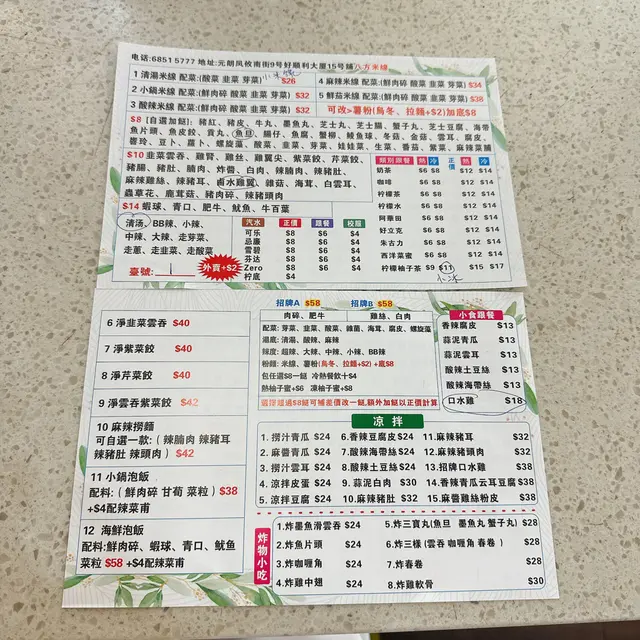 电话:6851 5777 地址:元朗凤攸南街9号好顺利大厦15号铺八方米線
1 清湯米線 配菜:(酸菜 韭菜 芽菜) $26
2 小鍋米線 配菜:(鮮肉碎 酸菜 韭菜 芽菜) $32
3 酸辣米線 配菜:(鮮肉碎 酸菜 韭菜 芽菜) $32
4 麻辣米線 配菜:(鮮肉碎 酸菜 韭菜 芽菜) $34
5 鮮菇米線 配菜:(鮮肉碎 酸菜 韭菜 芽菜) $38
可改>薯粉(烏冬、拉麵+$2)加底$8
$8 [自選加餸]: 豬紅、豬皮、牛丸、墨魚丸、芝士丸、芝士腸、蟹子丸、芝士豆腐、海帶
魚片頭、魚皮餃、貢丸、魚旦、腸仔、魚腐、蟹柳、鮜魚球、冬菇、金菇、豆卜、腐皮、
響玲、豆卜、蘿卜、螺旋藻、酸菜、韭菜、芽菜、娃娃菜、生菜、香茜、紫菜、麻辣菜脯
$10 韭菜雲吞、雞腎、雞丝、雞翼尖、紫菜餃、芹菜餃、
豬腸、豬肚、腩肉、炸醬、白肉、辣腩肉、辣豬肚、
麻辣雞絲、辣豬耳、鹵水雞翼、雜菇、海茸、白雲耳、
蟲草花、鹿茸菇、豬肉碎、辣豬頭肉
$14 蝦球、青口、肥牛、魷魚、牛百葉
清汤、BB辣、小辣、
中辣、大辣、走芽菜、
走蔥、走韭菜、走酸菜
臺號:
外賣+$2
汽水 正價 跟餐 校服
可乐 $8 $6 $4
忌廉 $8 $6 $4
雪碧 $8 $6 $4
芬达 $8 $6 $4
Zero $8 $6 $4
柠底 $4
類別跟餐 熱 冷 正價 熱 冷
奶茶 $6 $8 $12 $14
咖啡 $6 $8 $12 $14
柠檬茶 $6 $8 $12 $14
柠檬水 $6 $8 $12 $14
阿華田 $6 $8 $12 $14
好立克 $6 $8 $12 $14
朱古力 $6 $8 $12 $14
西洋菜蜜 $6 $8 $12 $14
柠檬柚子茶 $9 $11 $15 $17
小冰
6 淨韭菜雲吞 $40
7 淨紫菜餃 $40
8 淨芹菜餃 $40
9 淨雲吞紫菜餃 $42
10 麻辣撈麵
可自選一款:( 辣腩肉 辣豬耳
辣豬肚 辣頭肉 ) $42
11 小鍋泡飯
配料:( 鮮肉碎 甘荀 菜粒 ) $38
+$4配辣菜甫
12 海鮮泡飯
配料:鮮肉碎、蝦球、青口、魷魚
菜粒 $58 +$4配辣菜甫
招牌A $58 招牌B $58
肉碎、肥牛 雞絲、白肉
配菜: 芽菜、韭菜、酸菜、雜菌、海茸、腐皮、螺旋藻
湯底: 清湯、酸辣、麻辣
辣度: 超辣、大辣、中辣、小辣、BB辣
粉麵: 米線、薯粉(烏冬、拉麵+$2) +底$8
包任選$8一餸 冷熱餐飲+$4
熱柚子蜜+$6 凍柚子蜜+$8
選擇超過$8餸可補差價改一餸,額外加餸以正價計算
小食跟餐
香辣腐皮 $13
蒜泥青瓜 $13
蒜泥雲耳 $13
酸辣土豆絲 $13
酸辣海帶絲 $13
口水雞 $18
涼拌
1. 撈汁青瓜 $24 6.香辣豆腐皮 $24 11.麻辣豬耳 $32
2. 麻醬青瓜 $24 7.酸辣海帶絲 $24 12.麻辣豬頭肉 $32
3. 撈汁雲耳 $24 8.酸辣土豆絲 $24 13.招牌口水雞 $38
4. 涼拌皮蛋 $24 9.蒜泥白肉 $30 14.香辣青瓜云耳豆腐 $38
5. 涼拌豆腐 $24 10.麻辣豬肚 $32 15.麻醬雞絲粉皮 $38
炸物小吃
1.炸墨魚滑雲吞 $24 5.炸三寶丸(魚旦 墨魚丸 蟹子丸) $28
2.炸魚片頭 $24 6.炸三様 (雲吞 咖喱角 春卷 ) $28
3.炸咖喱角 $24 7.炸春卷 $28
4.炸雞中翅 $24 8.炸雞軟骨 $30